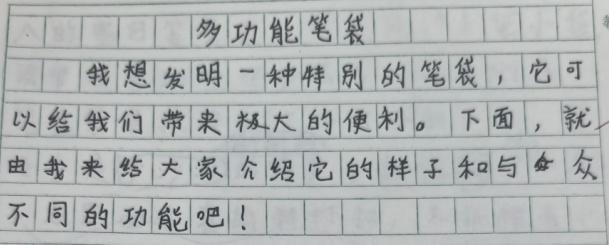 多功能笔袋
我想发明一种特别的笔袋，它可
以给我们带来极大的便利。下面，就
由我来给大家介绍它的样子和与众
不同的功能吧！